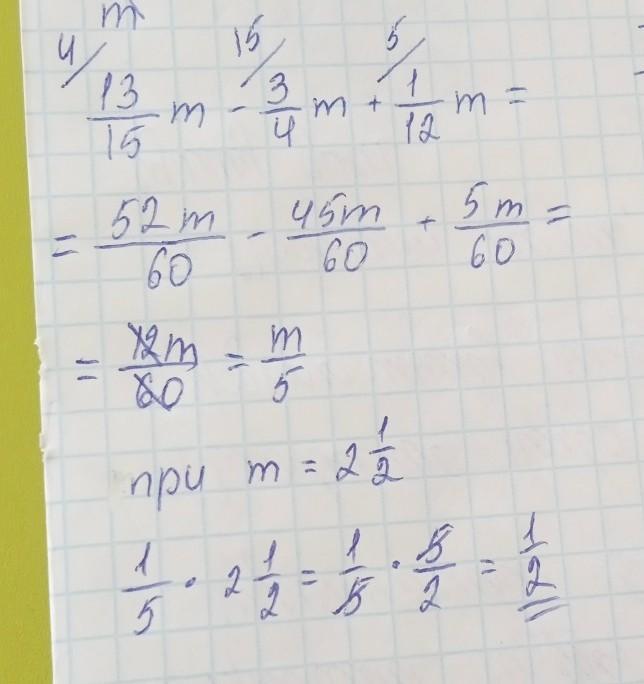 m
4/ 13/15 m - 15/ 3/4 m + 5/ 1/12 m =
= 52m/60 - 45m/60 + 5m/60 =
= 12m/60 = m/5
при m = 2 1/2
1/5 · 2 1/2 = 1/5 · 5/2 = 1/2